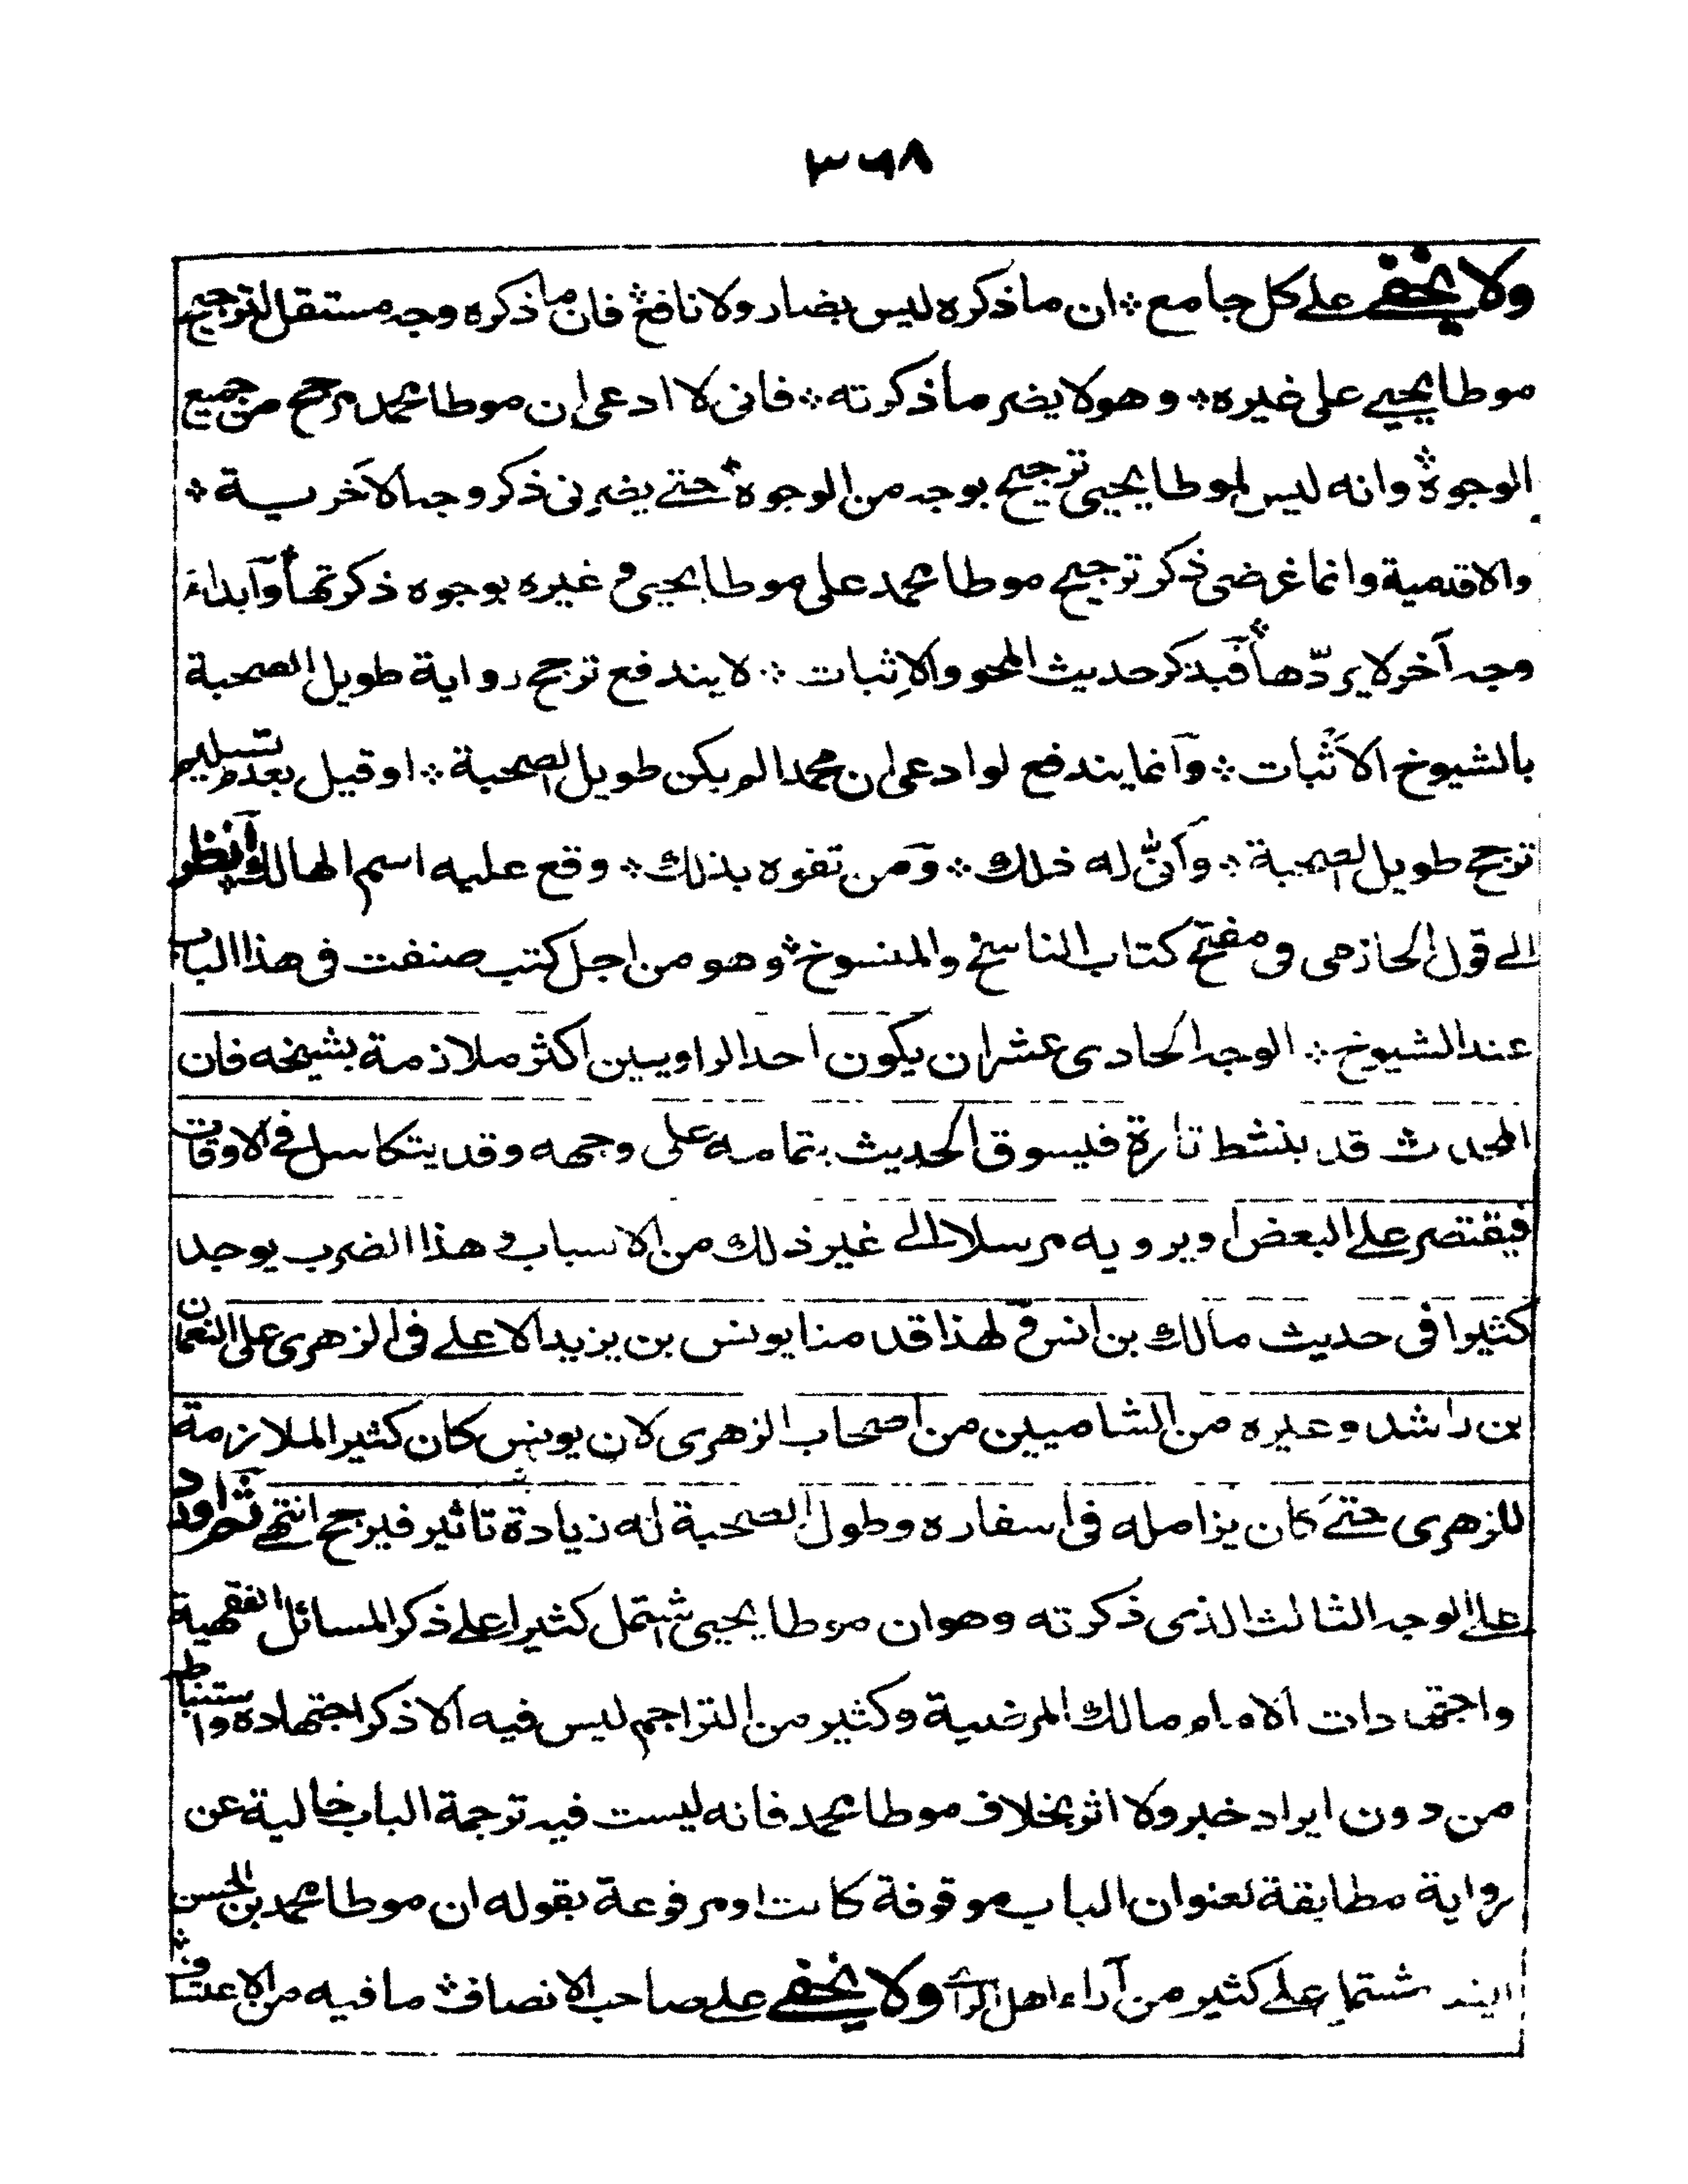 ٣٦٨
ولا يخفى على كل جامع ٭ ان ما ذكره ليس بضار ولا نافع ٭ فان ما ذكره وجه مستقل لترجيح
موطا يحيى على غيره ٭ وهو لا يضر ما ذكرته ٭ فانى لا ادعى ان موطا محمد مرجح من جميع
الوجوه ٭ وانه ليس لموطا يحيى ترجيح بوجه من الوجوه ٭ حتى يضرنى ذكر وجه الآخرية ٭
والاقدمية وانما غرضى ذكر ترجيح موطا محمد على موطا يحيى وغيره بوجوه ذكرتها ٭ وآبداء
وجه آخر لا يردّها ٭ فبذكر حديث المحو والاثبات ٭ لا يندفع ترجح رواية طويل الصحبة
بالشيوخ الاثبات ٭ وآنما يندفع لو ادعى ان محمدا لم يكن طويل الصحبة ٭ او قيل بعدم تسليم
ترجح طويل الصحبة ٭ وآنّى له ذلك ٭ ومن تفوه بذلك ٭ وقع عليه اسم الهالك ٭ وآنظر
الى قول الحازمى فى مفتتح كتاب الناسخ والمنسوخ ٭ وهو من اجل كتب صنفت فى هذا الباب
عند الشيوخ ٭ الوجه الحادى عشر ان يكون احد الراويين اكثر ملازمة بشيخه فان
المحدث قد ينشط تارة فيسوق الحديث بتمامه على وجهه وقد يتكاسل فى الاوقات
فيقتصر على البعض او يرويه مرسلا الى غير ذلك من الاسباب و هذا الضرب يوجد
كثيرا فى حديث مالك بن انس ولهذا قدمنا يونس بن يزيد الاعلى فى الزهرى على النعمان
بن راشد وغيره من الشاميين من اصحاب الزهرى لان يونس كان كثير الملازمة
للزهرى حتى كان يزامله فى اسفاره وطول الصحبة له زيادة تاثير فيرجح انتهى ثم اورد
على الوجه الثالث الذى ذكرته وهو ان موطا يحيى شتمل كثيرا على ذكر المسائل الفقهية
واجتهادات الامام مالك المرضية وكثير من التراجم ليس فيه الا ذكر اجتهاده واستنباطه
من دون ايراد خبر ولا اثر بخلاف موطا محمد فانه ليست فيه ترجمة الباب خالية عن
رواية مطابقة لعنوان الباب موقوفة كانت او مرفوعة بقوله ان موطا محمد بن الحسن
ايضا مشتمل على كثير من آراء اهل الراى ولا يخفى على صاحب الانصاف ٭ ما فيه من الاعتساف ٭